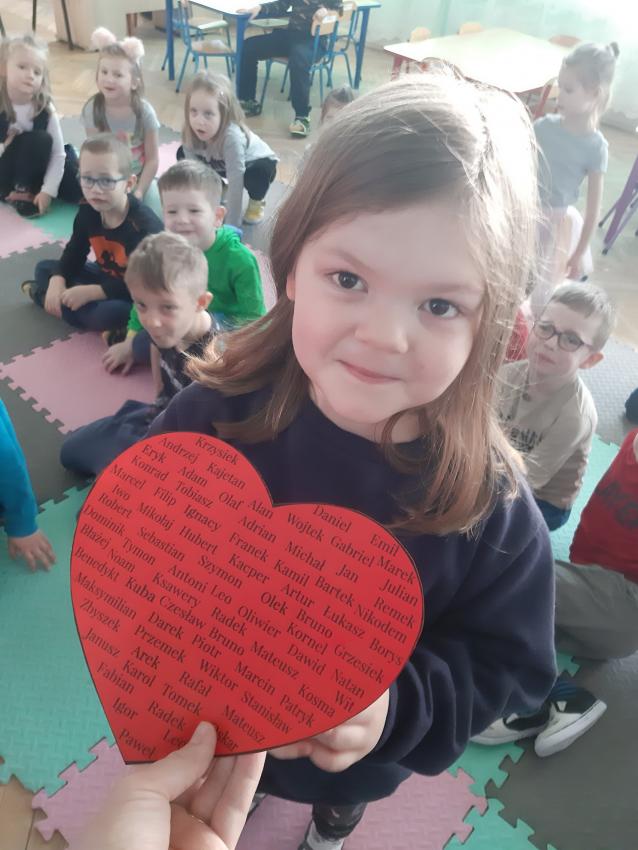 Krzysiek
Andrzej Kajetan
Daniel Emil
Marek
Eryk Adam Olaf Alan Wojtek Gabriel Julian
Konrad Tobiasz Adrian Michał Jan Remek
Marcel Filip Ignacy Franek Kamil Bartek Nikodem
Iwo Mikołaj Hubert Kacper Artur Łukasz Borys
Robert Sebastian Szymon Olek Bruno Grzesiek
Dominik Tymon Antoni Leo Oliwier Kornel Natan
Błażej Noam Ksawery Radek Dawid Wit
Benedykt Kuba Czesław Bruno Mateusz Kosma
Maksymilian Darek Piotr Marcin Patryk
Zbyszek Przemek Wiktor Stanisław
Janusz Arek Rafał Mateusz
Karol Tomek
Fabian Radek
Igor
Paweł